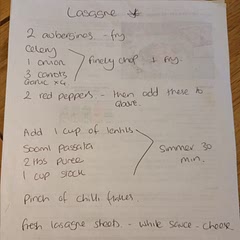 Lasagne
2 aubergines - fry
Celery
1 onion
3 carrots
Garlic x4
finely chop + fry
2 red peppers - then add these to
above.
Add 1 cup of lentils
500ml Passata
2 tbs puree
1 cup stock
Simmer 30
min.
Pinch of chilli flakes
Fresh lasagne sheets - white sauce - cheese